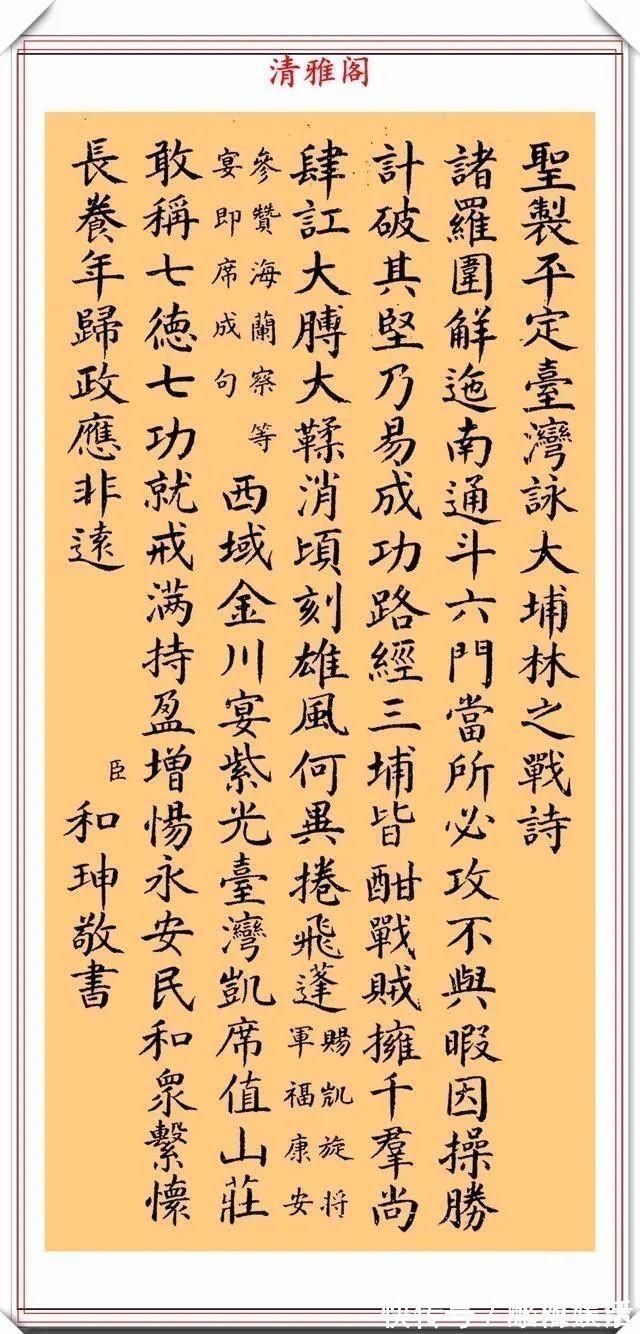 清雅阁
聖製平定臺灣詠大埔林之戰詩
諸羅圍解迤南通斗六門當所必攻不與暇因操勝
計破其堅乃易成功路經三埔皆酣戰賊擁千羣尚
肆訌大膊大鞣消頃刻雄風何異捲飛蓬
賜凱旋将
軍福康安
參贊海蘭察等
宴即席成句
西域金川宴紫光臺灣凱席值山莊
敢稱七德七功就戒滿持盈增惕永安民和眾繫懷
長養年歸政應非遠
臣
和珅敬書